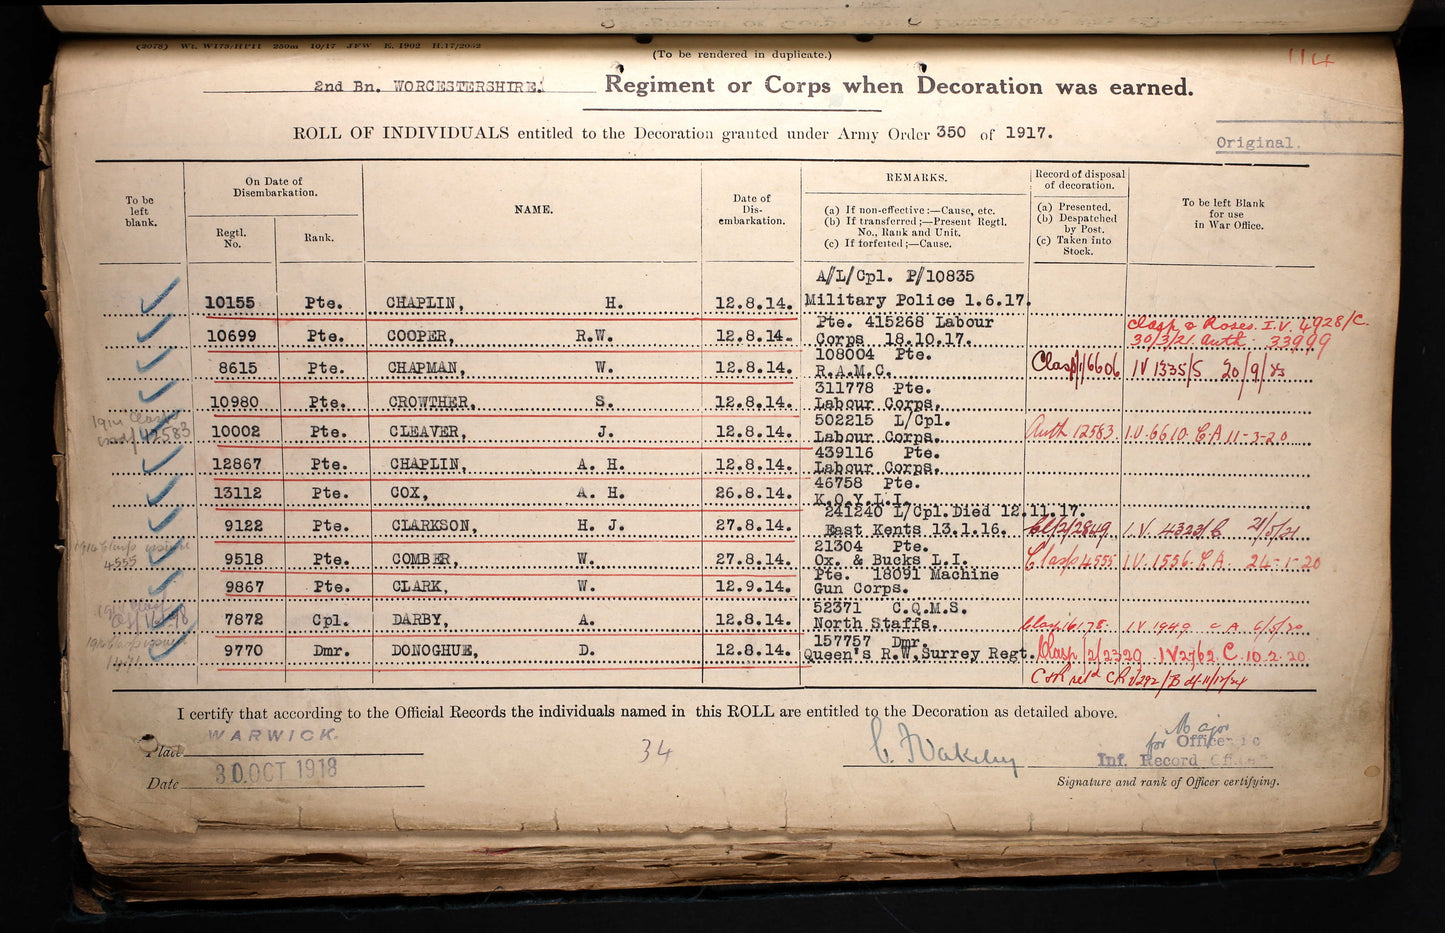 (2078) Wt. W175/HP11 250m 10/17 JFW E. 1902 H.17/2052
(To be rendered in duplicate.)
114
2nd Bn. WORCESTERSHIRE. Regiment or Corps when Decoration was earned.
ROLL OF INDIVIDUALS entitled to the Decoration granted under Army Order 350 of 1917.
Original.
To be left blank.
On Date of Disembarkation.
Regtl. No.
Rank.
NAME.
Date of Dis-embarkation.
REMARKS.
(a) If non-effective :—Cause, etc.
(b) If transferred ;—Present Regtl. No., Rank and Unit.
(c) If forfeited ;—Cause.
Record of disposal of decoration.
(a) Presented.
(b) Despatched by Post.
(c) Taken into Stock.
To be left Blank for use in War Office.
A/L/Cpl. P/10835
10155 Pte. CHAPLIN, H. 12.8.14. Military Police 1.6.17.
Pte. 415268 Labour
Clasp & Roses. I.V. 4928/C.
10699 Pte. COOPER, R.W. 12.8.14. Corps 18.10.17. 30/3/21 Auth 33999
108004 Pte.
8615 Pte. CHAPMAN, W. 12.8.14. R.A.M.C. Clasp/1/6606 IV 1335/S 20/9/23
311778 Pte.
10980 Pte. CROWTHER, S. 12.8.14. Labour Corps.
1914 Clasp
502215 L/Cpl.
12583 10002 Pte. CLEAVER, J. 12.8.14. Labour Corps. Auth 12583. I.V. 6610. C A 11-3-20
439116 Pte.
12867 Pte. CHAPLIN, A. H. 12.8.14. Labour Corps.
46758 Pte.
13112 Pte. COX, A. H. 26.8.14. K.O.Y.L.I.
241240 L/Cpl. Died 12.11.17.
9122 Pte. CLARKSON, H. J. 27.8.14. East Kents 13.1.16. Cl/2/2849 I.V. 4323/C 21/5/21
1914 Clasp
21304 Pte.
4555 9518 Pte. COMBER, W. 27.8.14. Ox. & Bucks L.I. Clasp 4555 I.V. 1556. C A. 24-1-20
Pte. 18091 Machine
9867 Pte. CLARK, W. 12.9.14. Gun Corps.
1914 Clasp
52371 C.Q.M.S.
7872 Cpl. DARBY, A. 12.8.14. North Staffs. Clasp 16178. I.V. 1949 C A
157757 Dmr.
9770 Dmr. DONOGHUE, D. 12.8.14. Queen's R.W. Surrey Regt. Clasp/2/2320 IV 2762. C. 10.2.20
I certify that according to the Official Records the individuals named in this ROLL are entitled to the Decoration as detailed above.
Place WARWICK.
34
Major
for Officer i/c
Inf. Record Office
Date 30 OCT 1918
Signature and rank of Officer certifying.